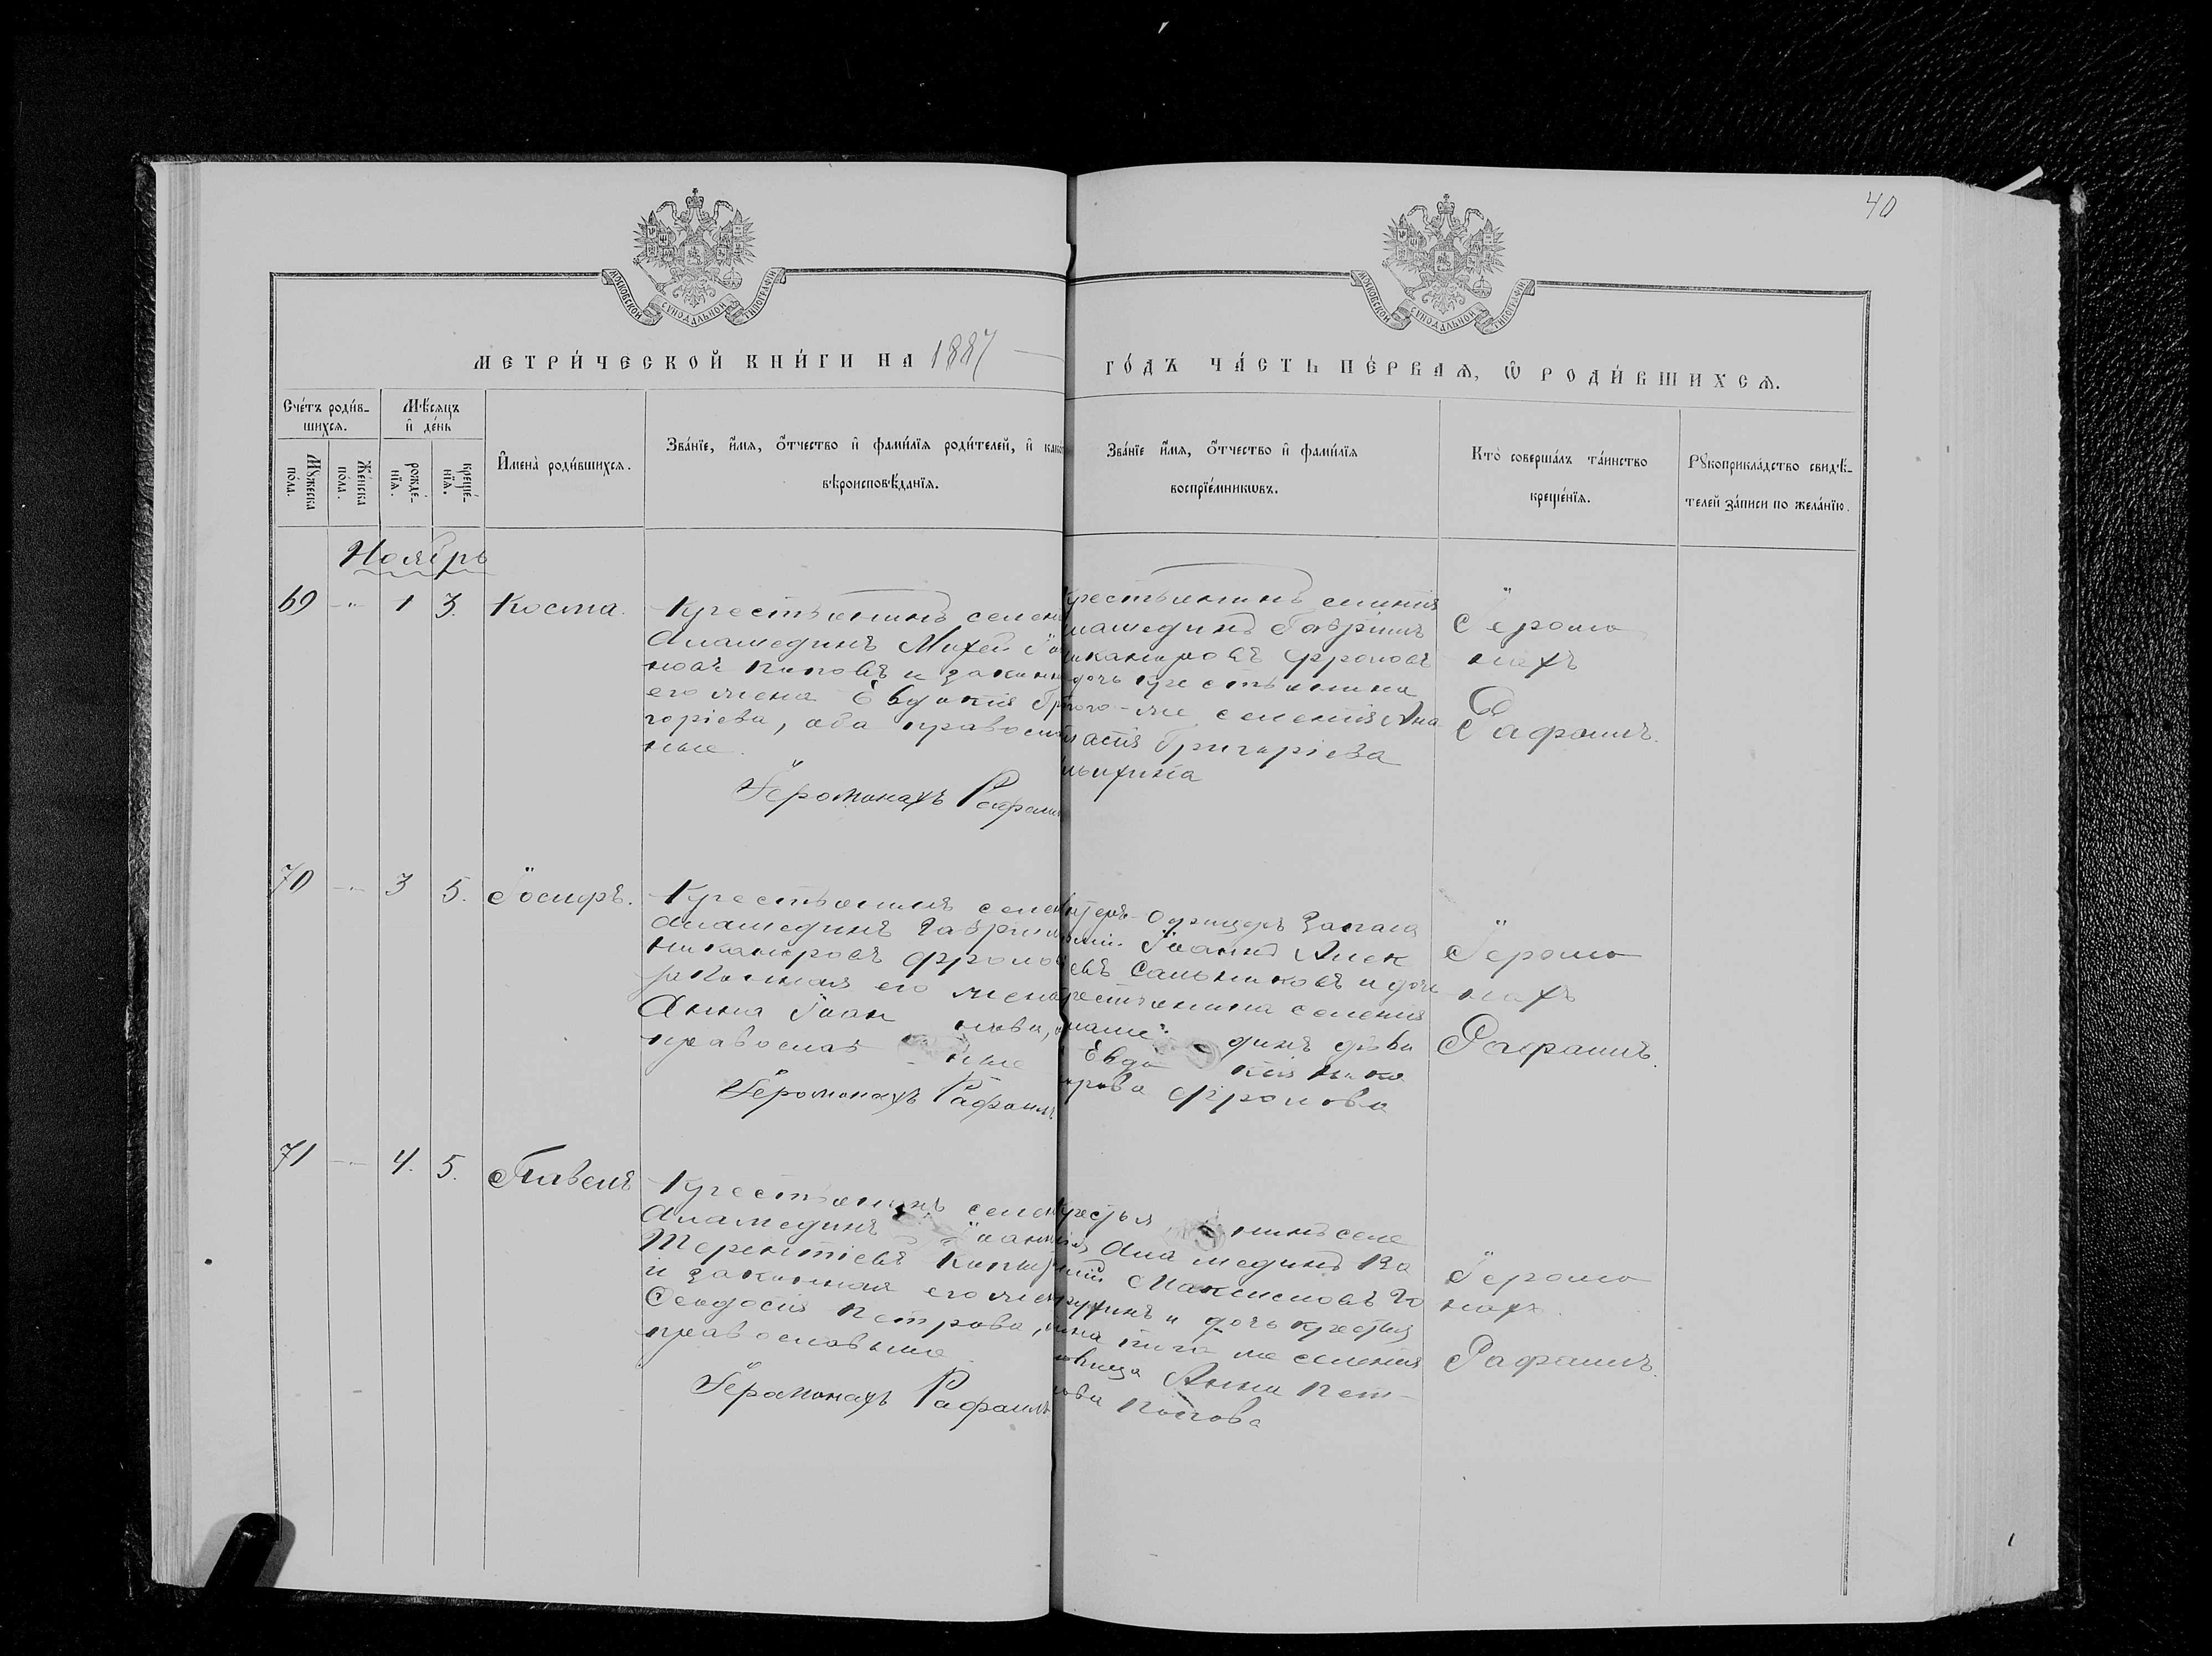 40
МОСКОВСКОЙ СѴНОДАЛЬНОЙ ТИПОГРАФІИ
МОСКОВСКОЙ СѴНОДАЛЬНОЙ ТИПОГРАФІИ
МЕТРИ́ЧЕСКОЙ КНИ́ГИ НА 1887
ГО́ДЪ ЧА́СТЬ ПЕ́РВАѦ, Ѿ РОДИ́ВШИХСѦ.
Сче́тъ роди́в-
шихсѧ.
Мѣ́сяцъ
и҆ де́нь
Мꙋ́жеска
по́ла.
Же́нска
по́ла.
рожде́-
нїѧ.
креще́-
нїѧ.
И҆мена̀ роди́вшихсѧ.
Зва́нїе, и҆́мя, ѻ҆́тчество и҆ фами́лїѧ роди́телей, и҆ како
вѣроисповѣ́данїѧ.
Зва́нїе и҆́мя, ѻ҆́тчество и҆ фами́лїѧ
воспрїе́мникѡвъ.
Кто̀ соверша́лъ та́инство
креще́нїѧ.
Рꙋкоприкла́дство свидѣ́-
телей за́писи по жела́нїю.
Ноябрь
69 -"- 1 3. Косма.
Крестьянинъ селен
Аламединъ Михей
новъ Поповъ и законн
его жена Евдокія Гр
горіева, оба православ
ные.
Іеромонахъ Рафаил
крестьянинъ селенія
ламединъ Гавріилъ
иканоровъ Фроловъ
дочь крестьянина
того-же селенія Ана
астія Григоріева
Іеромо
нахъ
Рафаилъ.
70 -"- 3 5. Іосифъ.
Крестьянинъ селен
Аламединъ Гавріилъ
Никаноровъ Фролов
законная его жена
Анна Іоан нова, о
православ ные
Іеромонахъ Рафаилъ
нтеръ-Офицеръ Запаса
Іоаннъ Алек
евъ Сальниковъ и дочь
рестьянина селенія
ламе- динъ дѣви
Евдо кія Ника
рова Фролова
Іеромо
нахъ
Рафаилъ.
71 -"- 4. 5. Павелъ
Крестьянинъ селен
Аламединъ Іоанн
Терентіевъ
и законная его жен
Ѳеодосія Петрова, о
православные
Іеромонахъ Рафаилъ
крестья нинъ селе
ія Ала мединъ Ва
илій Максимовъ
и дочь крестья
ина того же селенія
ѣвица Анна Пет-
ова Попова
Іеромо
нахъ
Рафаилъ.